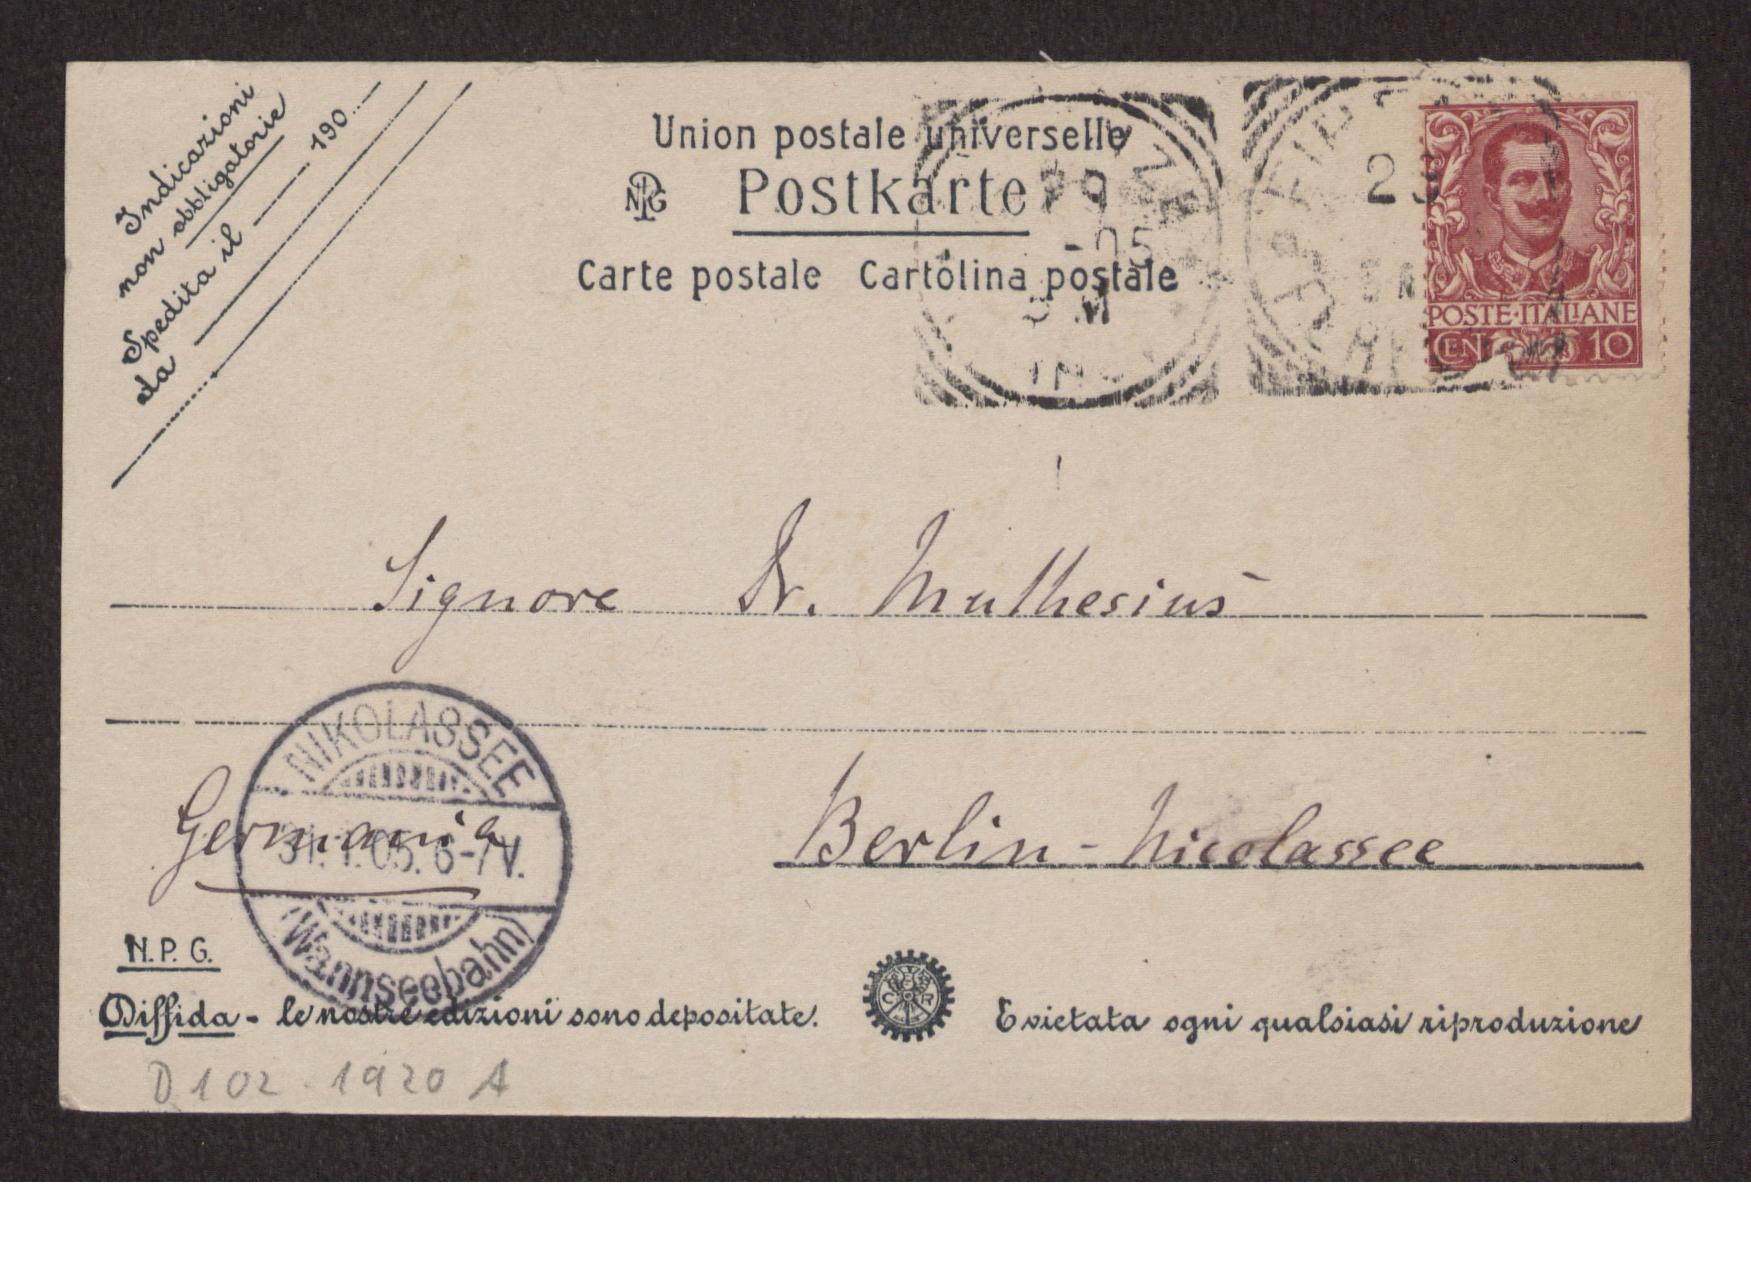 Indicazioni
non obbligatorie
Spedita il 190
da
Union postale universelle
Postkarte
Carte postale Cartolina postale
29
-05
2
POSTE·ITALIANE
CEN 10
Signore Dr. Muthesius
NIKOLASSEE
31.1.05. 6-7V.
(Wannseebahn)
Germania
Berlin-Nicolassee
N.P.G.
Diffida - le nostre edizioni sono depositate.
E vietata ogni qualsiasi riproduzione
D 102 - 1920 A